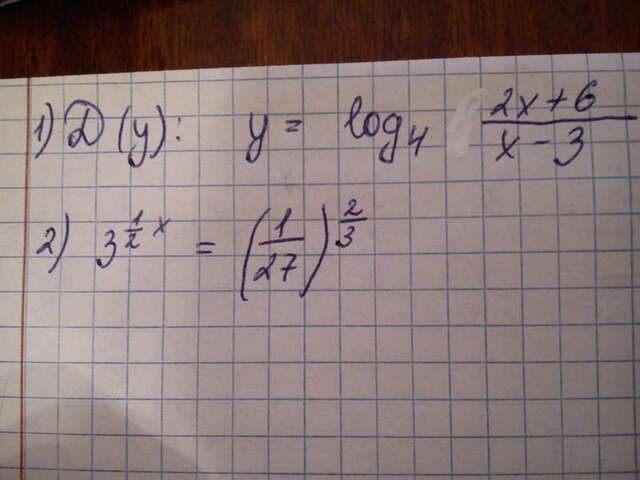 1) D(y): y = log₄ (2x+6)/(x-3)
2) 3^(1/2 x) = (1/27)^(2/3)